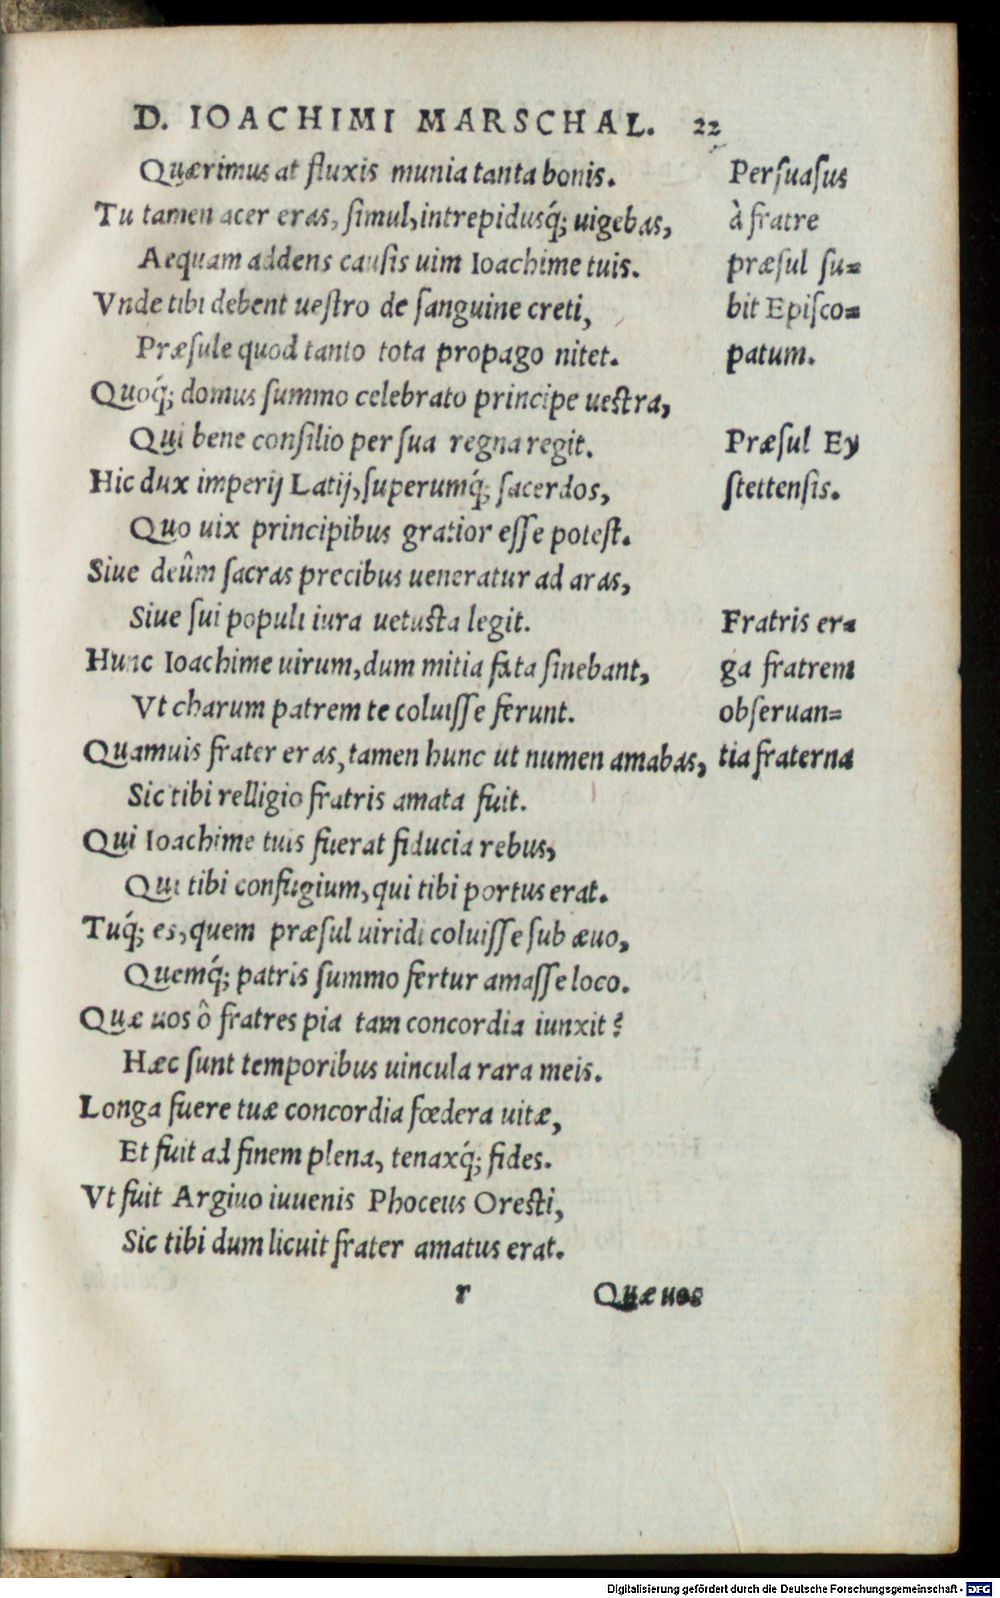 D. IOACHIMI MARSCHAL. 22
Quærimus at fluxis munia tanta bonis.
Tu tamen acer eras, ſimul, intrepidusq́; uigebas,
Aequam addens cauſis uim Ioachime tuis.
Vnde tibi debent ueſtro de ſanguine creti,
Præſule quod tanto tota propago nitet.
Quoq́; domus ſummo celebrato principe ueſtra,
Qui bene conſilio per ſua regna regit.
Hic dux imperij Latij, ſuperumq́; ſacerdos,
Quo uix principibus gratior eſſe poteſt.
Siue deûm ſacras precibus ueneratur ad aras,
Siue ſui populi iura uetuſta legit.
Hunc Ioachime uirum, dum mitia fata ſinebant,
Vt charum patrem te coluiſſe ferunt.
Quamuis frater eras, tamen hunc ut numen amabas,
Sic tibi relligio fratris amata fuit.
Qui Ioachime tuis fuerat fiducia rebus,
Qui tibi confugium, qui tibi portus erat.
Tuq́; es, quem præſul uiridi coluiſſe ſub æuo,
Quemq́; patris ſummo fertur amaſſe loco.
Quæ uos ô fratres pia tam concordia iunxit?
Hæc ſunt temporibus uincula rara meis.
Longa fuere tuæ concordia fœdera uitæ,
Et fuit ad finem plena, tenaxq́; fides.
Vt fuit Argiuo iuuenis Phoceus Oreſti,
Sic tibi dum licuit frater amatus erat.
r Quæ uos
Perſuaſus
à fratre
præſul ſu-
bit Epiſco-
patum.
Præſul Ey
ſtettenſis.
Fratris er-
ga fratrem
obſeruan-
tia fraterna
Digitalisierung gefördert durch die Deutsche Forschungsgemeinschaft - DFG